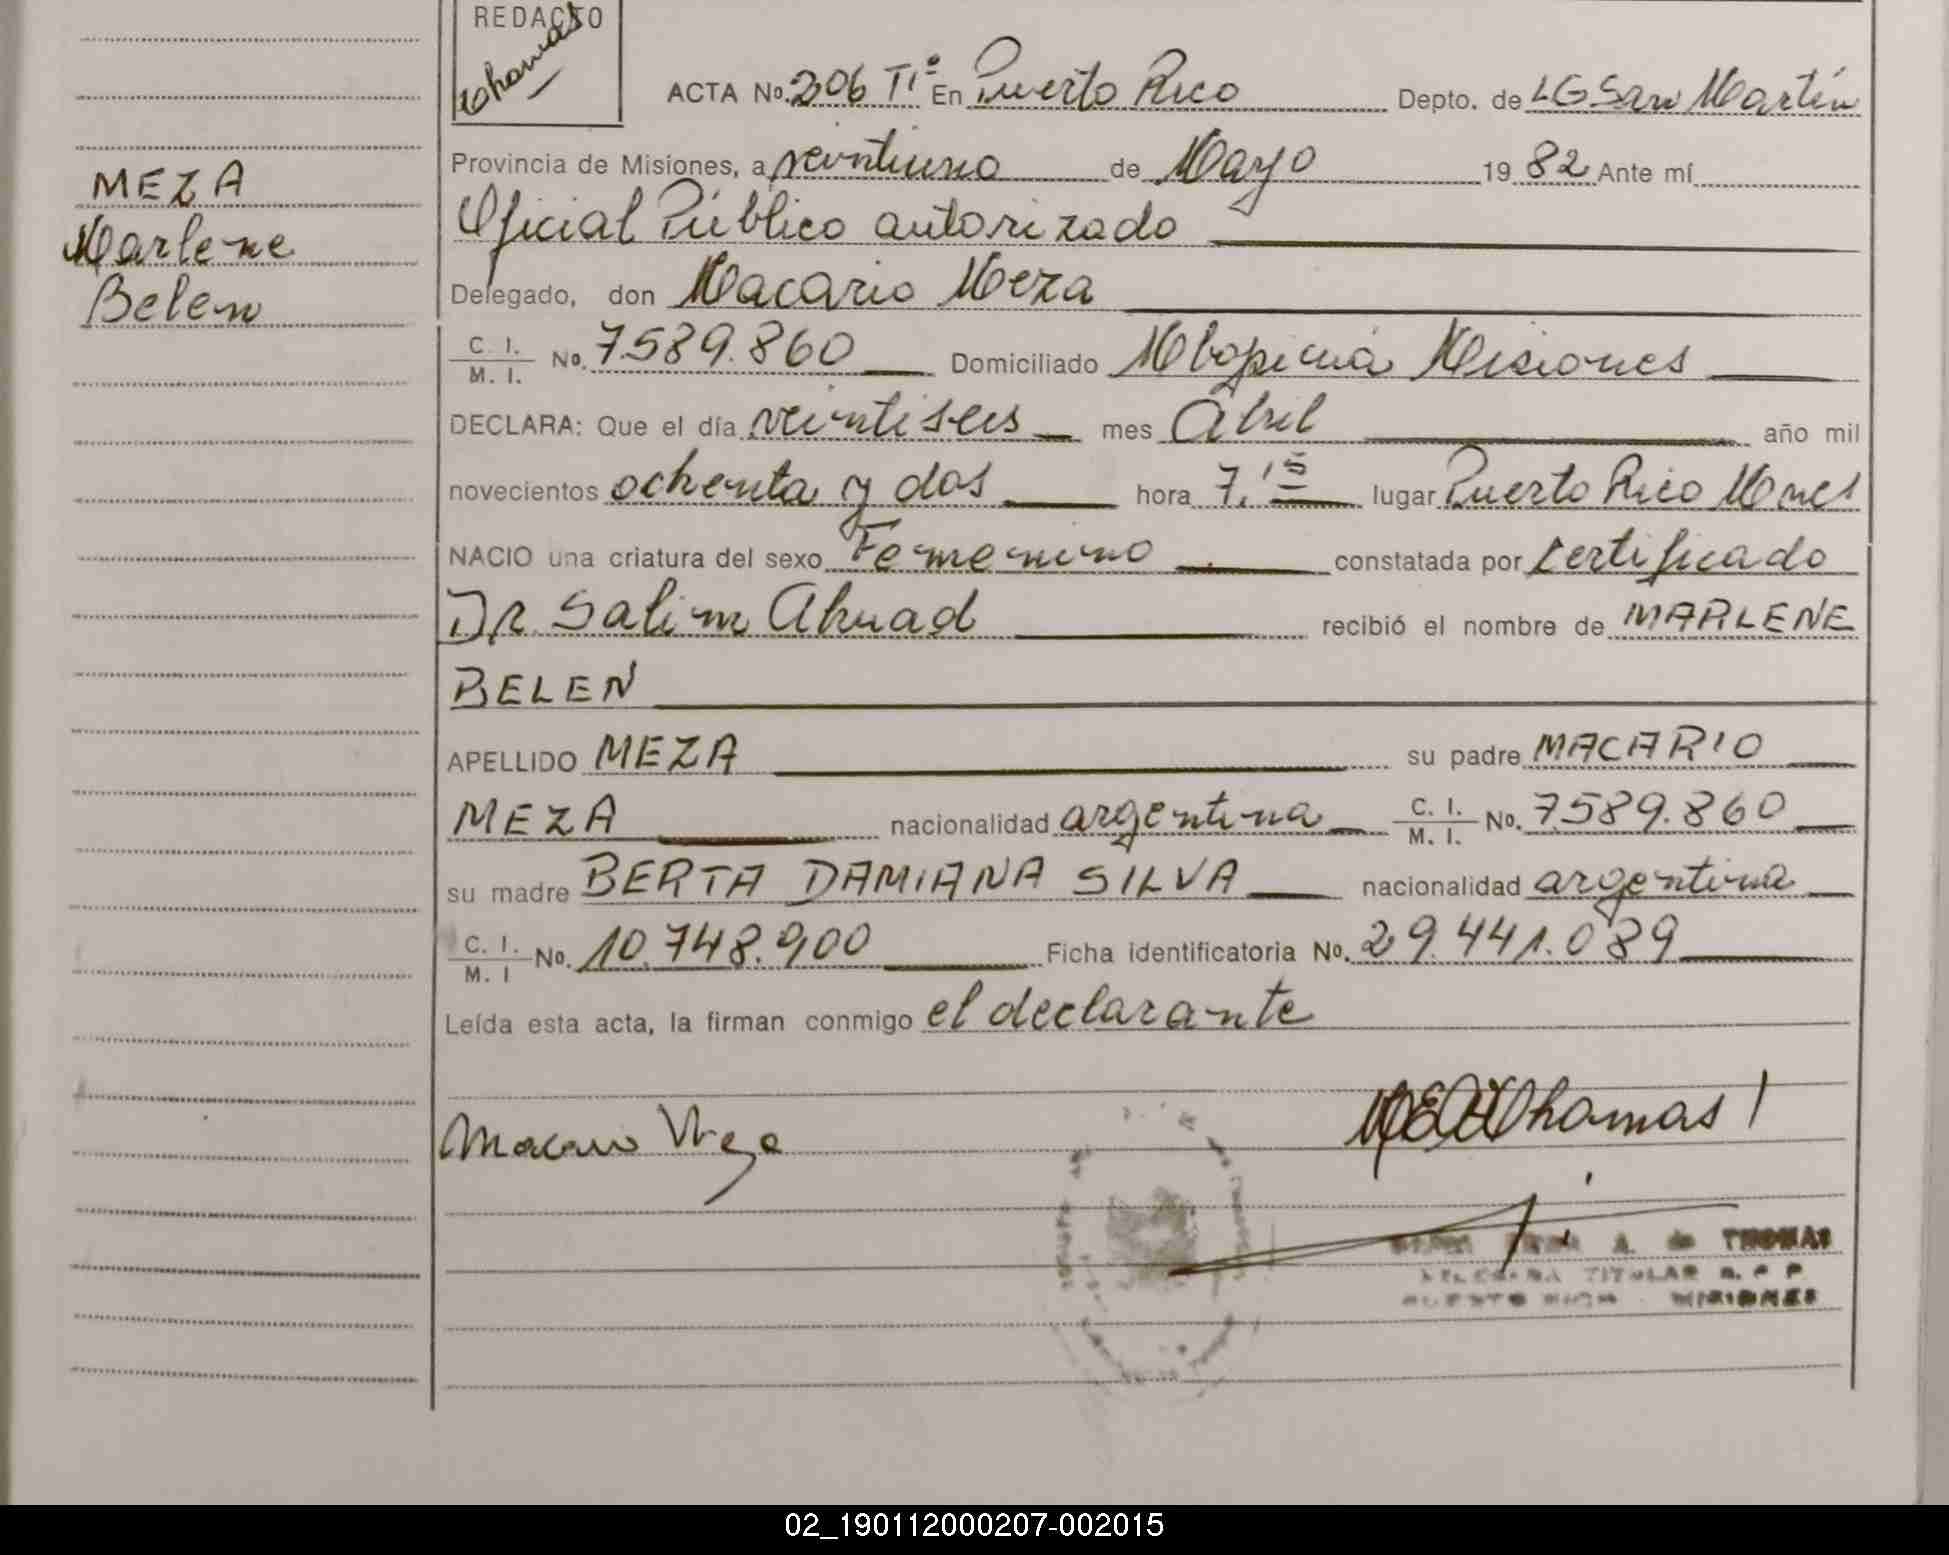 REDACTO
Thomas
ACTA No. 206 Tº Iº En Puerto Rico Depto. de LG San Martín
Provincia de Misiones, a veintiuno de Mayo 19 82 Ante mí
Oficial Público autorizado
Delegado, don Macario Meza
C. I. / M. I. No. 7.589.860 Domiciliado Mbopicuá Misiones
DECLARA: Que el día veintiseis mes Abril año mil
novecientos ochenta y dos hora 7,15 lugar Puerto Rico Mnes
NACIO una criatura del sexo Femenino constatada por certificado
Dr. Salim Ahuad recibió el nombre de MARLENE
BELEN
APELLIDO MEZA su padre MACARIO
MEZA nacionalidad argentina C. I. / M. I. No. 7.589.860
su madre BERTA DAMIANA SILVA nacionalidad argentina
C. I. / M. I No. 10.748.900 Ficha identificatoria No. 29.441.089
Leída esta acta, la firman conmigo el declarante
MEZA
Marlene
Belen
Macario Meza
Thomas
A. de THOMAS
TITULAR R. P. P.
PUERTO RICO - MISIONES
02_190112000207-002015